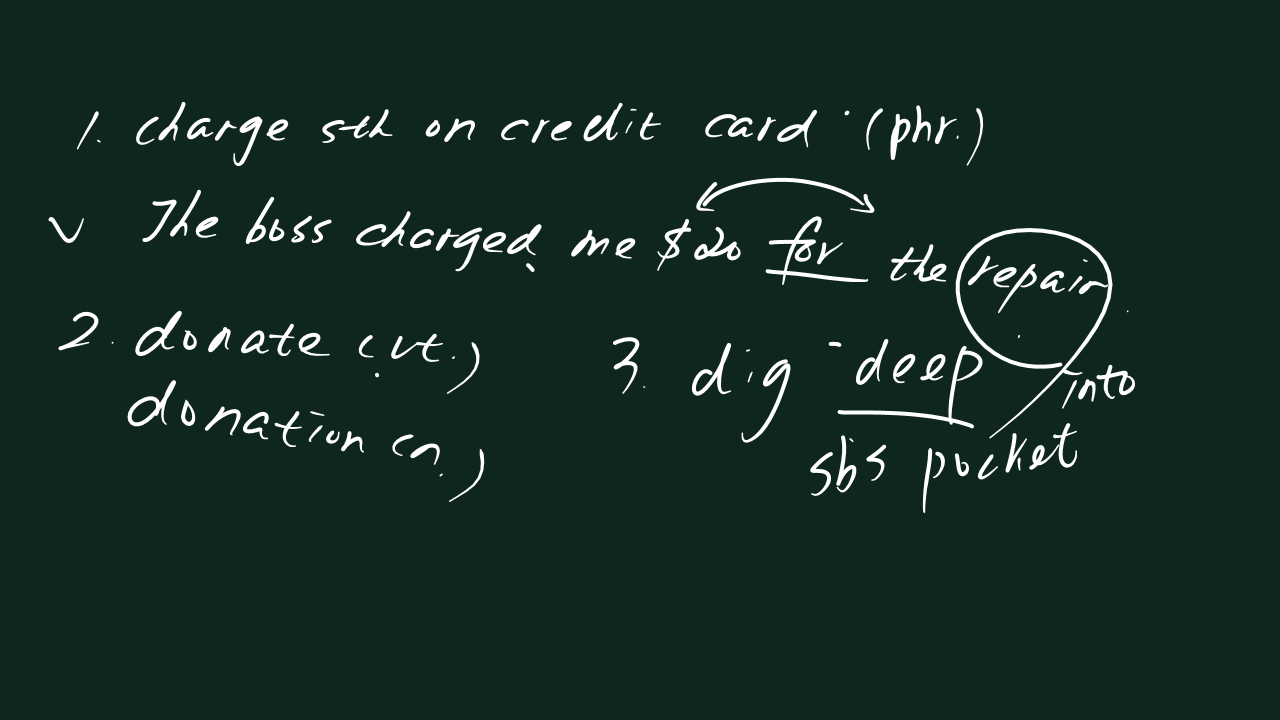 1. charge sth on credit card (phr.)
v The boss charged me $20 for the repair
2. donate (vt.)
donation (n.)
3. dig deep into
sb's pocket